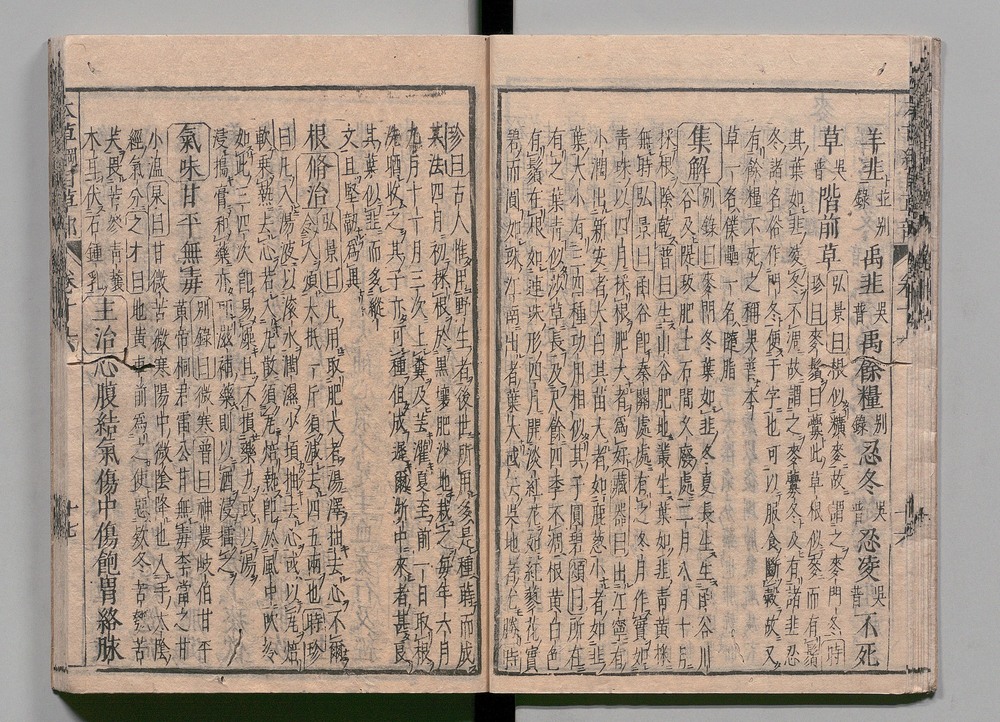 羊韭並別錄禹韭吳普禹餘糧別錄忍冬吳普忍凌吳普不死
草吳普階前草弘景曰根似穬麥故謂之麥門冬時珍曰麥鬚曰虋此草根似麥而有鬚
其葉如韭凌冬不凋故謂之麥虋冬及有諸韭忍
冬諸名俗作門冬便于字也可以服食斷穀故又
有餘糧不死之稱吳普本
草一名僕壘一名隨脂
集解別錄曰麥門冬葉如韭冬夏長生生函谷川谷及隄坂肥土石間久廢處二月八月十月
採根陰乾普曰生山谷肥地叢生葉如韭青黃採
無時弘景曰函谷即秦關處處有之冬月作實如
青珠以四月採根肥大者為好藏器曰出江寧者
小潤出新安者大白其苗大者如鹿蔥小者如韭
葉大小有三四種功用相似其子圓碧頌曰所在
有之葉青似沙草長及尺餘四季不凋根黃白色
有鬚在根如連珠形四月開淡紅花如紅蓼花實
碧而圓如珠江南出者葉大或云吳地者尤勝時
珍曰古人惟用野生者後世所用多是種蒔而成
其法四月初採根於黑壤肥沙地栽之每年六月
九月十一月三次上糞及芸灌夏至前一日取根
洗晒收之其子亦可種但成遲爾浙中來者甚良
其葉似韭而多縱
文且堅韌為異
根修治弘景曰凡用取肥大者湯澤抽去心不爾令人煩大抵一斤須減去四五兩也時珍
曰凡入湯液以滾水潤濕少頃抽去心或以瓦焙
軟乘熱去心若入丸散須瓦焙熱即於風中吹冷
如此三四次即易燥且不損藥力或以湯
浸擣膏和藥亦可滋補藥則以酒浸擂之
氣味甘平無毒別錄曰微寒普曰神農岐伯甘平黃帝桐君雷公甘無毒李當之甘
小溫杲曰甘微苦微寒陽中微陰降也入手太陰
經氣分之才曰地黃車前為之使惡款冬苦瓠苦
芺畏苦參青蘘
木耳伏石鍾乳主治心腹結氣傷中傷飽胃絡脉